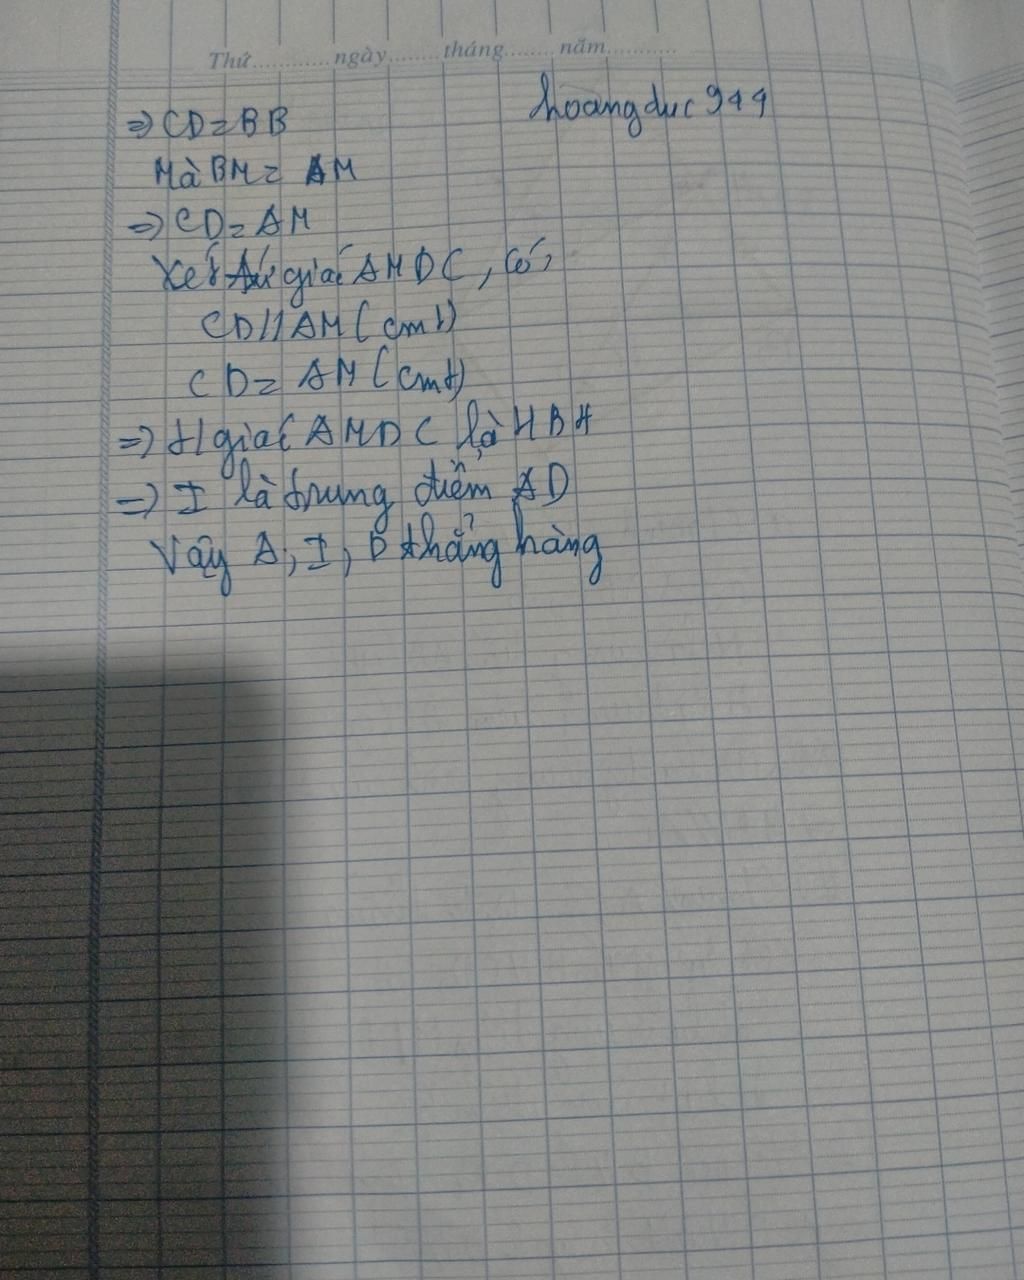 Thứ............ngày........tháng........năm...........
hoangduc944
=> CD=BB
Mà BM= AM
=> CD= AM
Xét tứ giác AMDC, có,
CD//AM (cmt)
CD= AM (cmt)
=> t/giác AMDC là HBH
=> I là trung điểm AD
Vậy A, I, D thẳng hàng